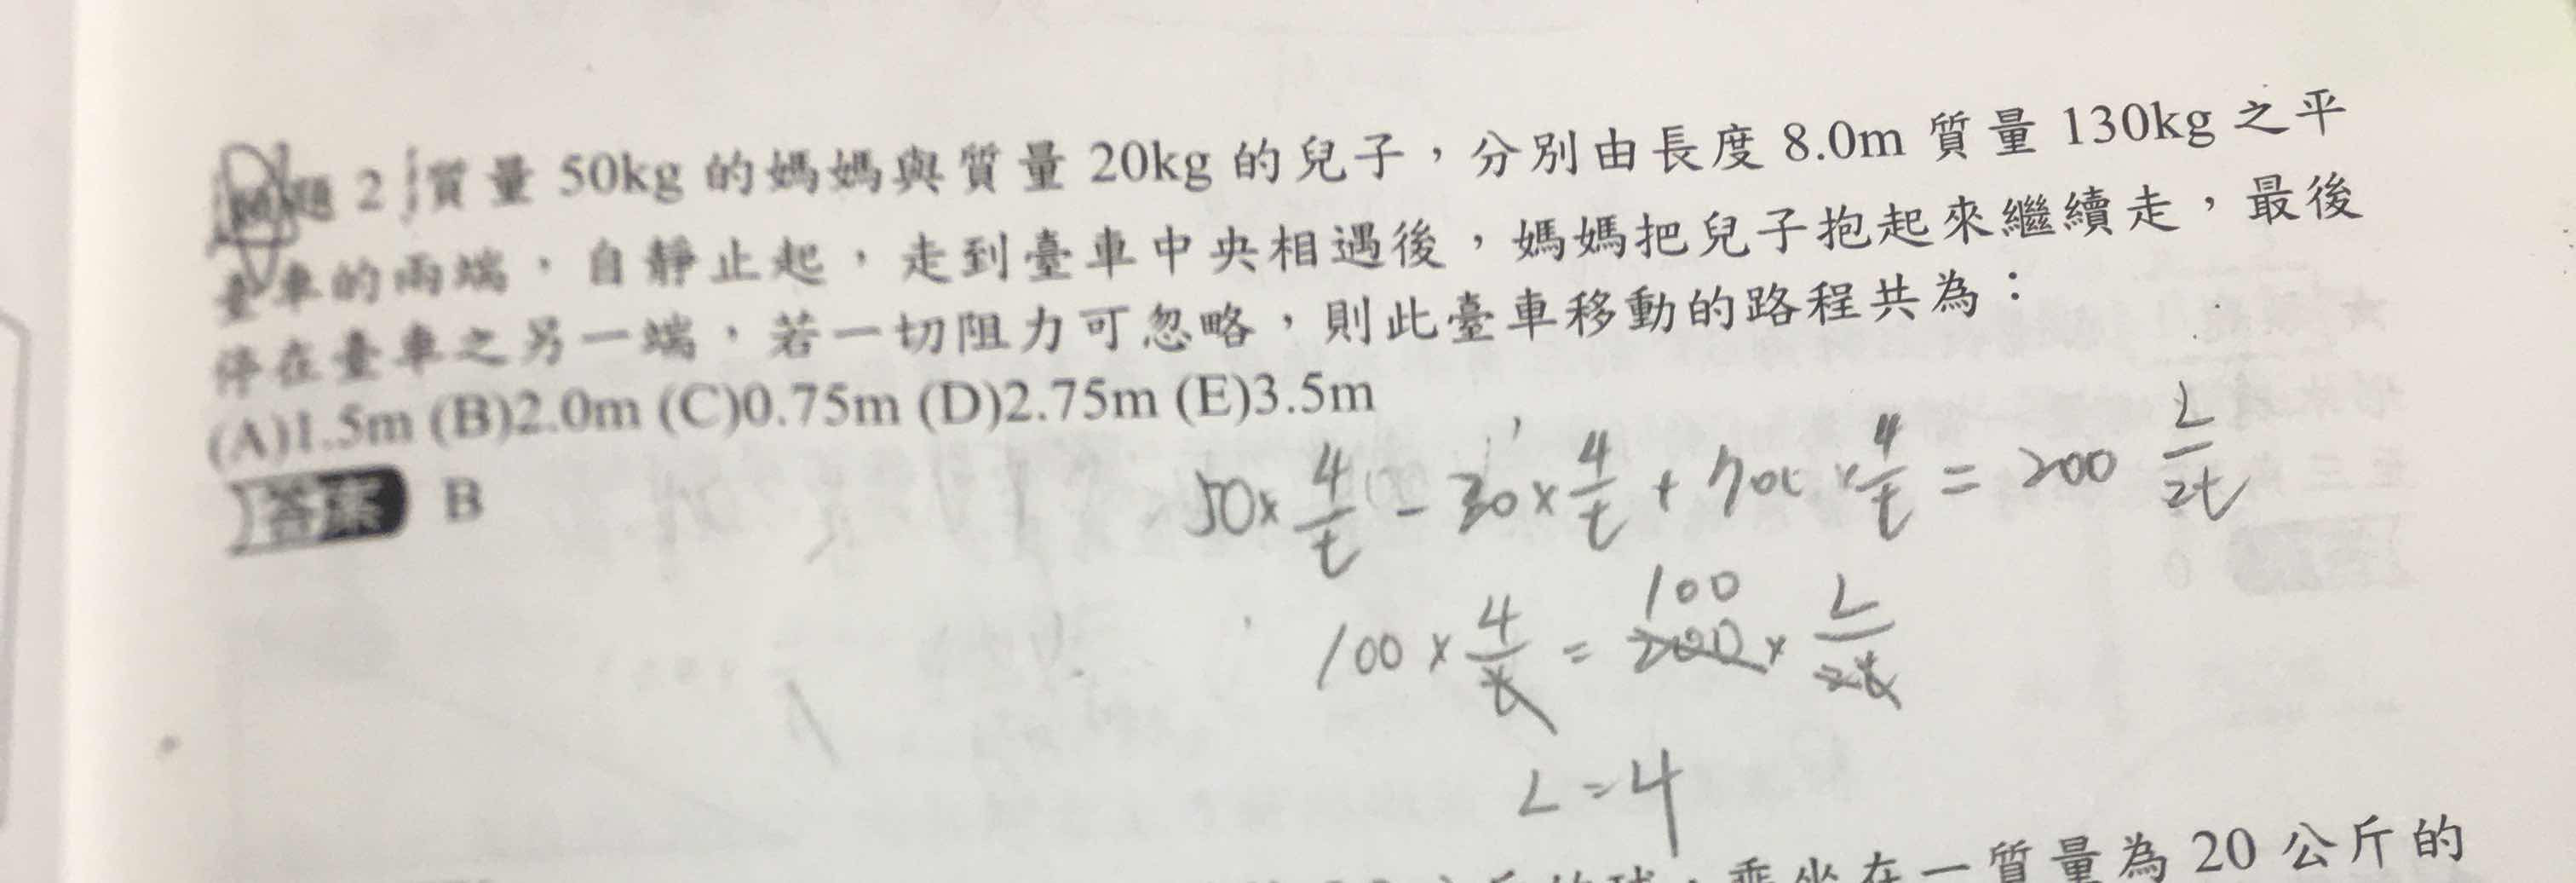 題 2 質量 50kg 的媽媽與質量 20kg 的兒子，分別由長度 8.0m 質量 130kg 之平
臺車的兩端，自靜止起，走到臺車中央相遇後，媽媽把兒子抱起來繼續走，最後
停在臺車之另一端，若一切阻力可忽略，則此臺車移動的路程共為：
(A)1.5m (B)2.0m (C)0.75m (D)2.75m (E)3.5m
答案 B
50× 4/t - 20× 4/t + 70× 4/t = 200 L/2t
100 × 4/t = 200 100 × L/2t
L=4
質量為 20 公斤的